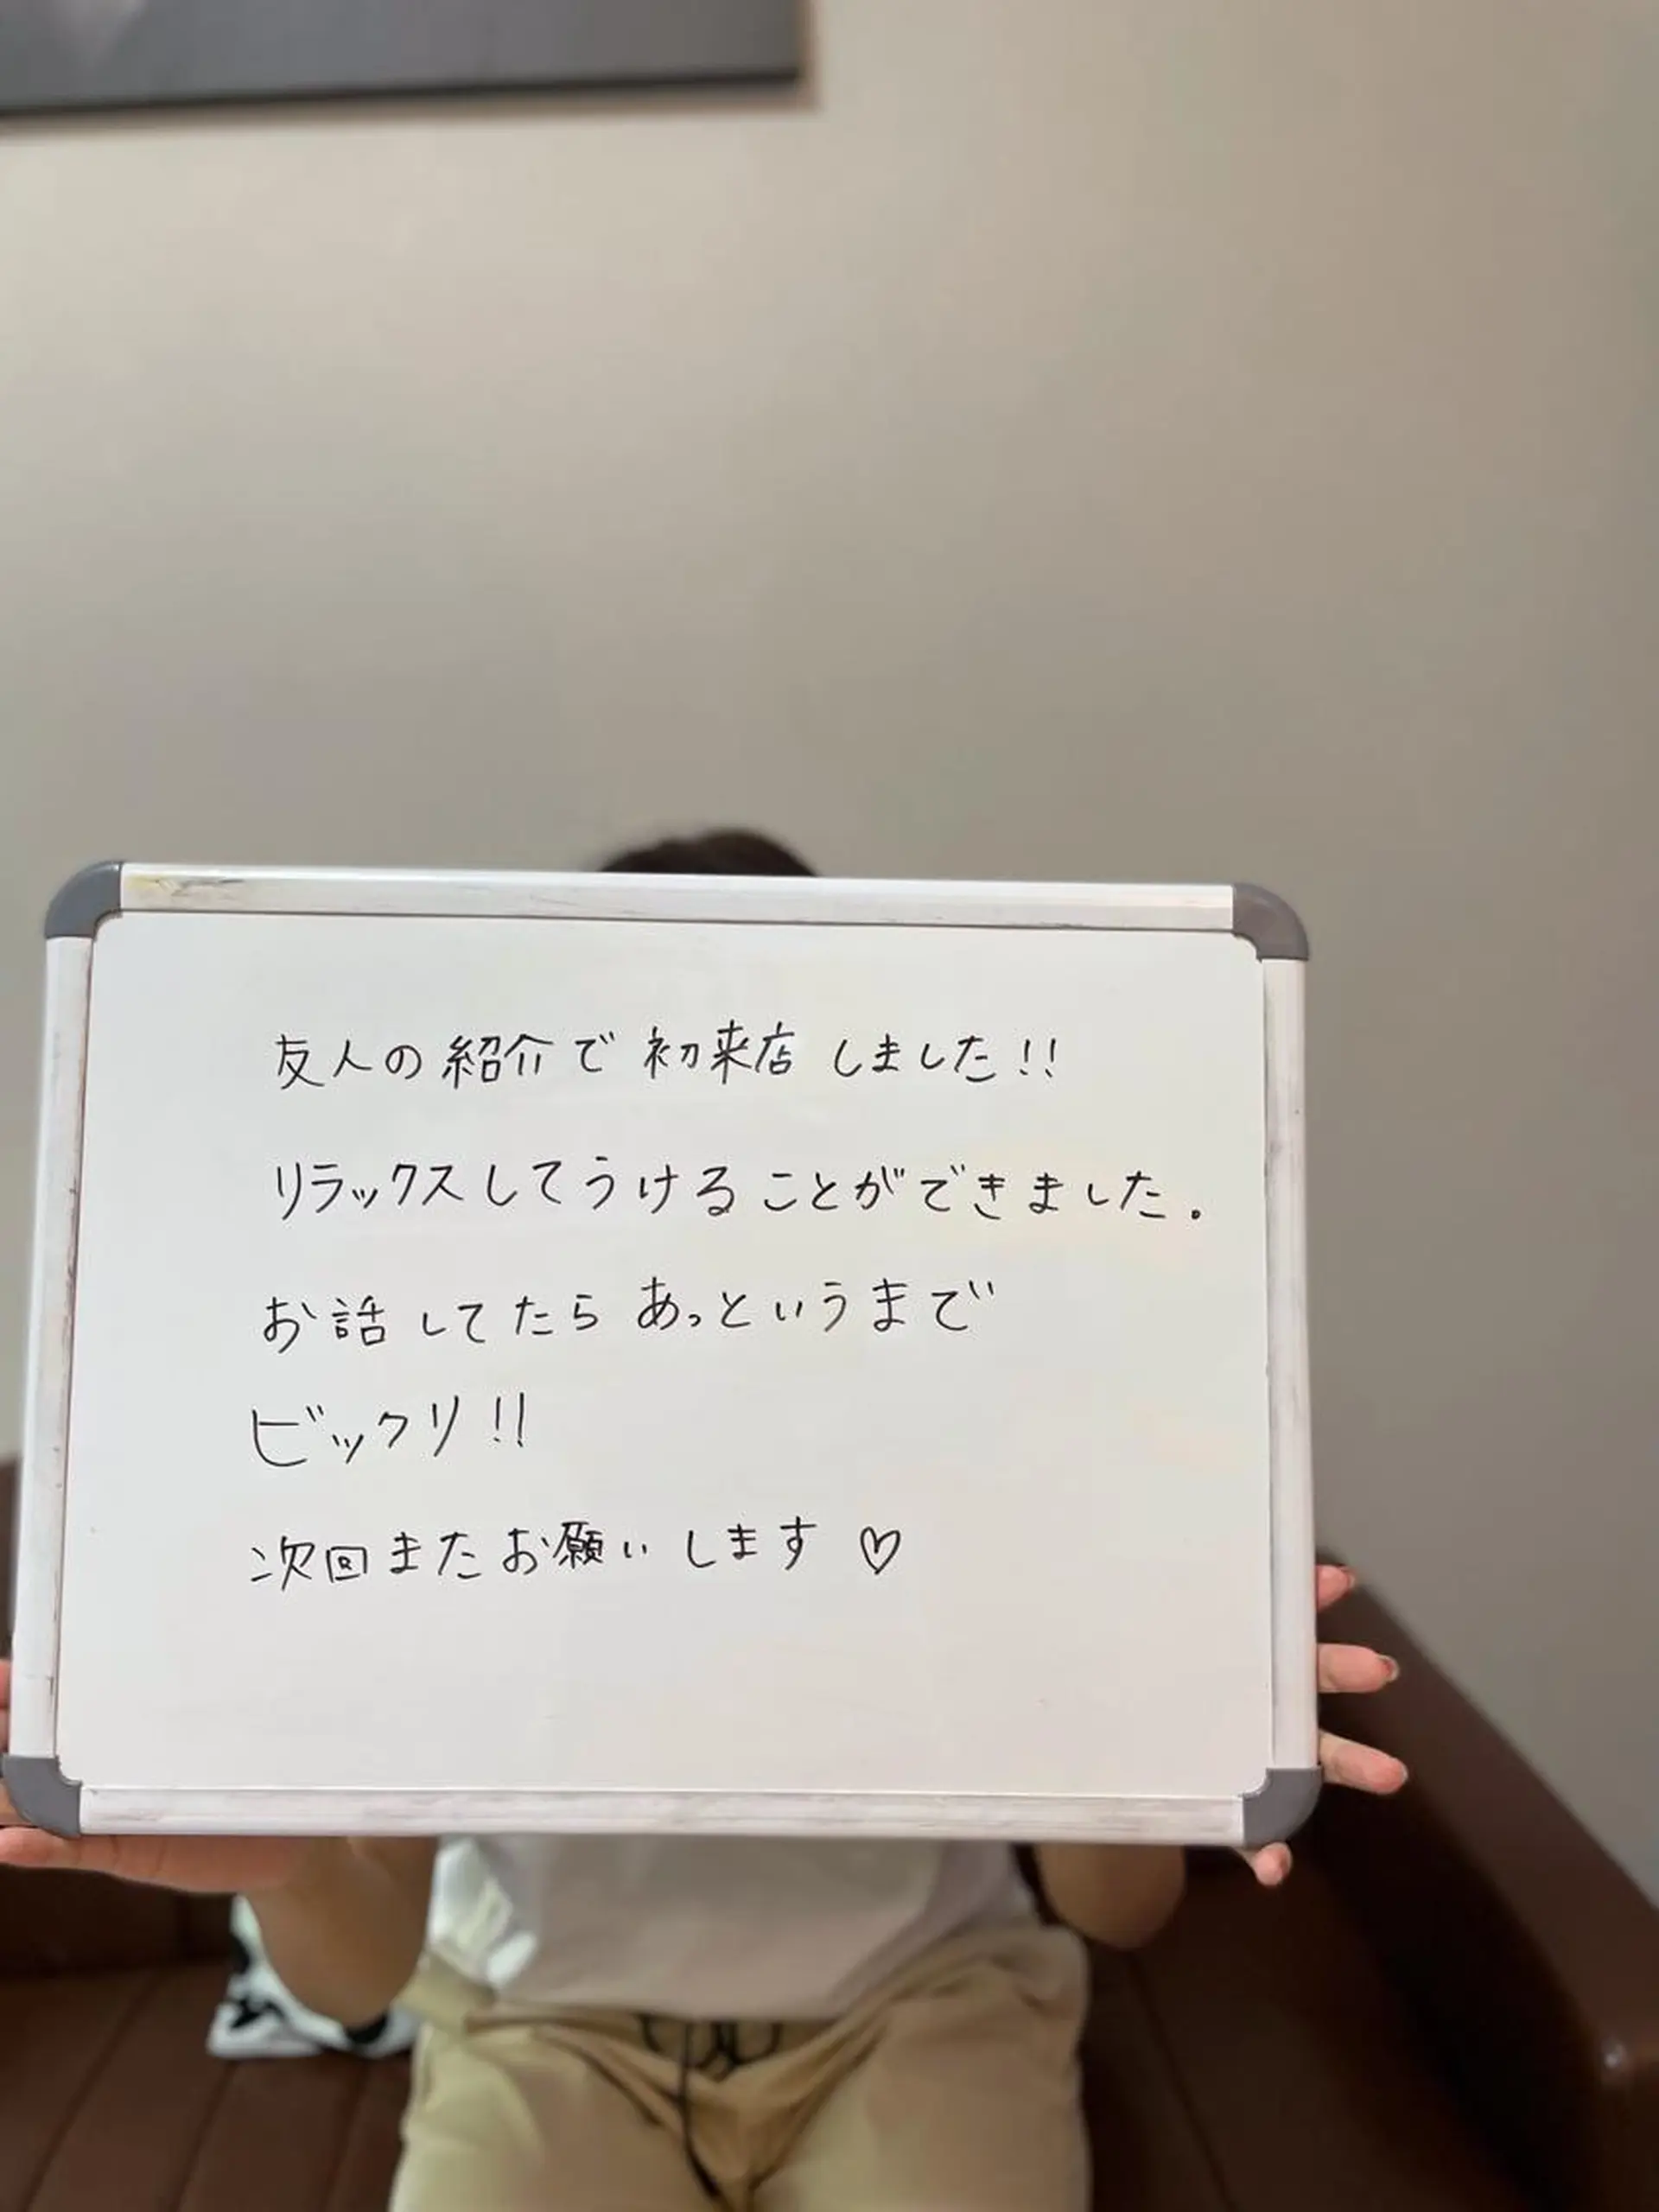 友人の紹介で初来店しました!!
リラックスしてうけることができました。
お話してたらあっというまで
ビックリ!!
次回またお願いします♡